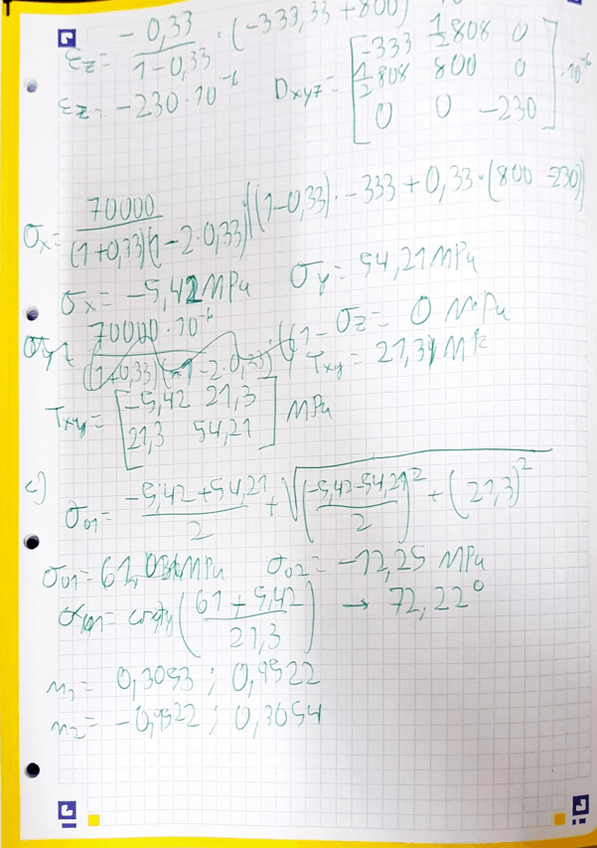 εz = - 0,33 / 1-0,33 · (-333,33 + 800)
εz = -230·10^-6 Dxyz = [-333 1/2 808 0
1/2 808 800 0
0 0 -230] ·10^-6
σx = 70000 / (1+0,33)(1-2·0,33) ((1-0,33)·-333 + 0,33·(800-230))
σx = -5,42 MPa σy = 54,21 MPa
70000·10^-6 / (1+0,33)(1-2·0,33) ((1- σz = 0 MPa
Txy = 21,31 MPa
Txy = [-5,42 21,3
21,3 54,21] MPa
c)
σ01 = -5,42+54,21 / 2 + √((-5,42-54,21 / 2)^2 + (21,3)^2)
σ01 = 61,03 MPa σ02 = -12,25 MPa
(61 + 5,42 / 21,3) → 72,22°
n1 = 0,3053 ; 0,9522
n2 = -0,9522 ; 0,3054